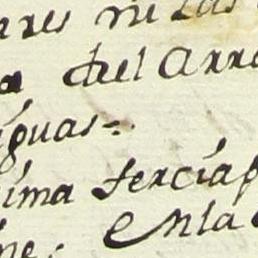 res ni las
a del Arro
iguas=.
ima tercia p
ne; Enla